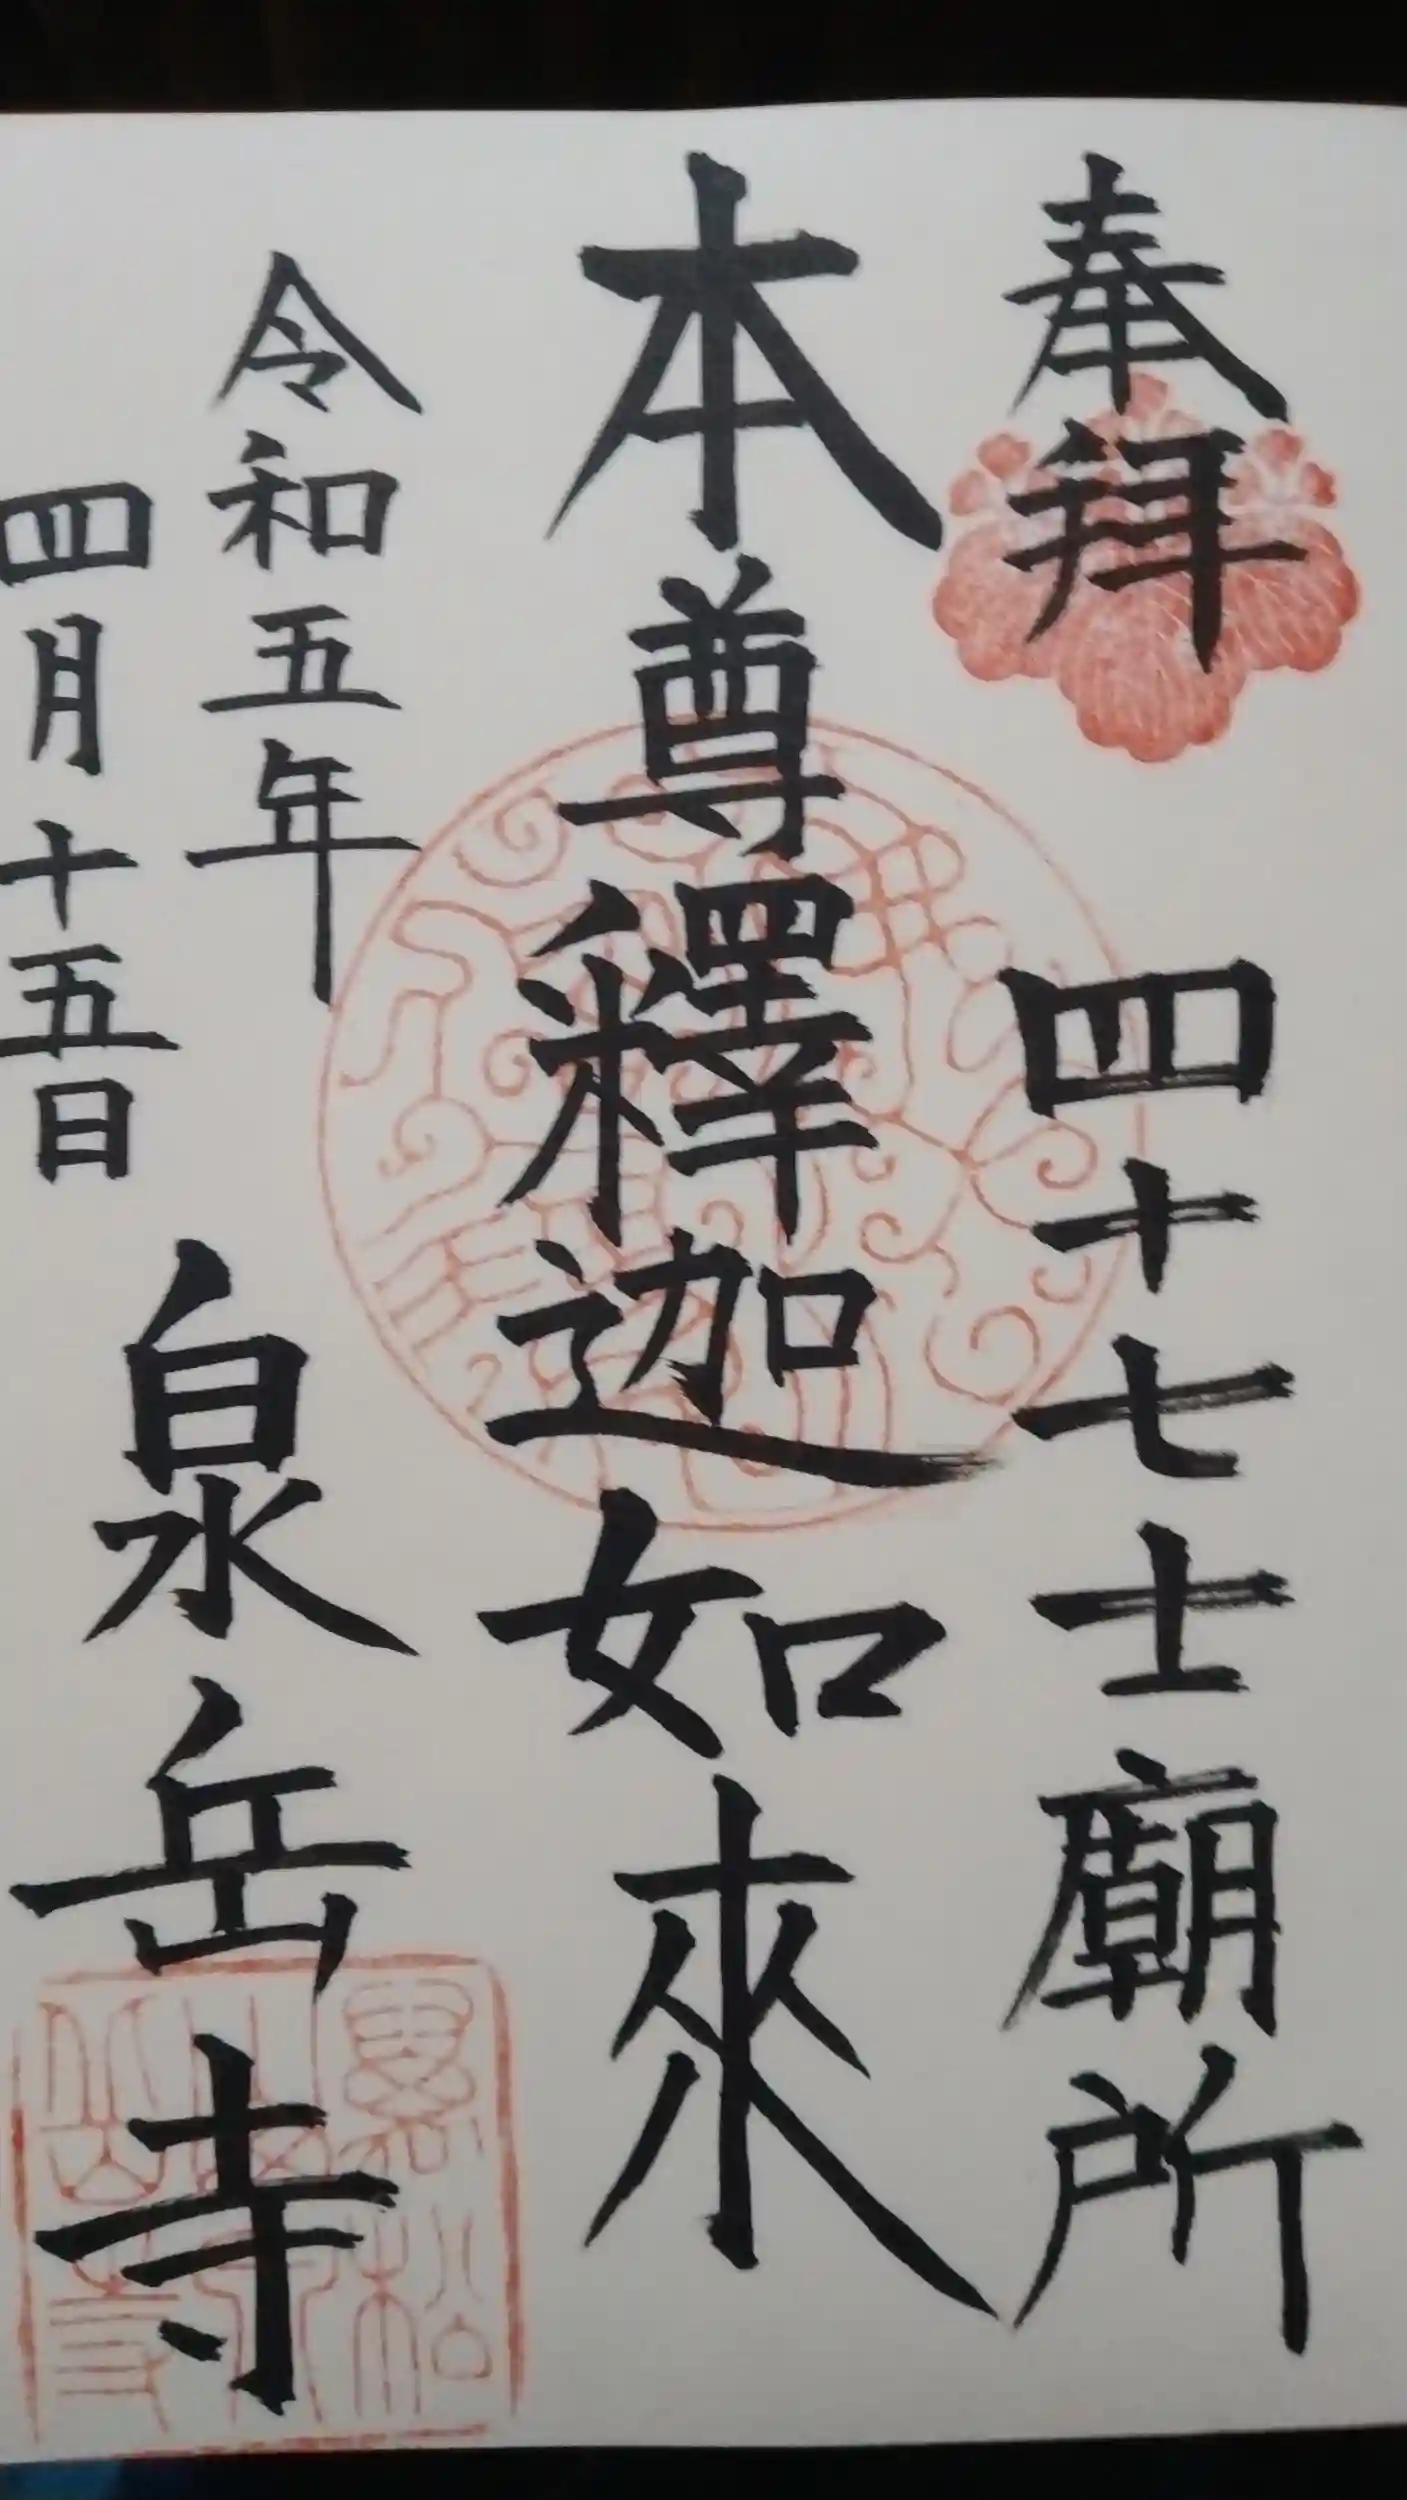 奉拜
四十七士廟所
本尊釋迦如來
令和五年
四月十五日
泉岳寺